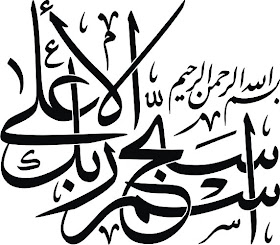 بسم الله الرحمن الرحيم
سبح اسم ربك الأعلى